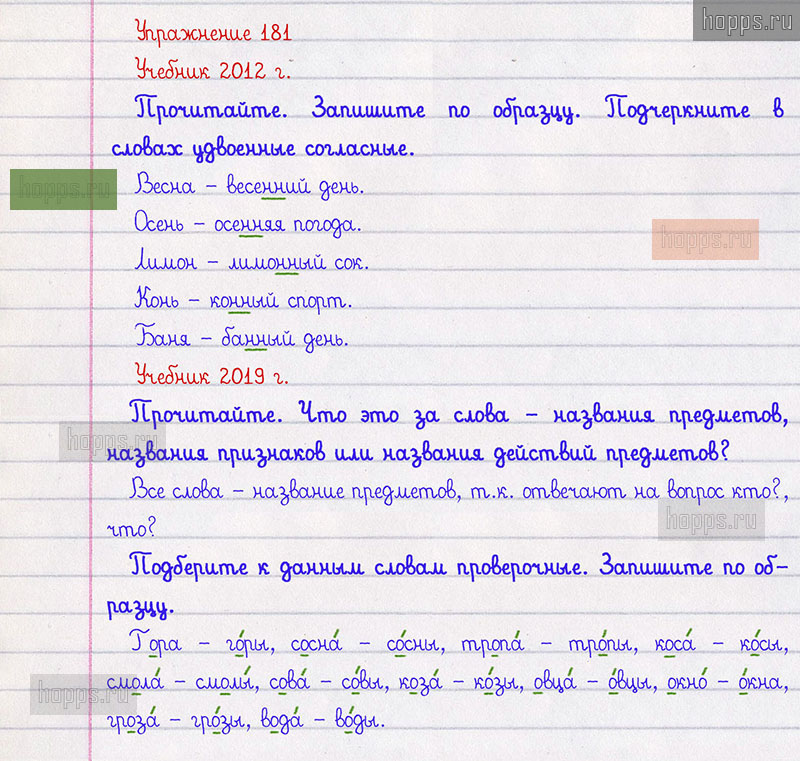 hopps.ru
Упражнение 181
Учебник 2012 г.
Прочитайте. Запишите по образцу. Подчеркните в
словах удвоенные согласные.
hopps.ru
Весна – весенний день.
Осень – осенняя погода.
hopps.ru
Лимон – лимонный сок.
Конь – конный спорт.
Баня – банный день.
Учебник 2019 г.
Прочитайте. Что это за слова – названия предметов,
hopps.ru
названия признаков или названия действий предметов?
Все слова – название предметов, т.к. отвечают на вопрос кто?,
hopps.ru
что?
Подберите к данным словам проверочные. Запишите по об-
разцу.
Гора – го́ры, сосна́ – со́сны, тропа́ – тро́пы, коса́ – ко́сы,
hopps.ru
смола́ – смолы́, сова́ – со́вы, коза́ – ко́зы, овца́ – о́вцы, окно́ – о́кна,
гроза́ – гро́зы, вода́ – во́ды.